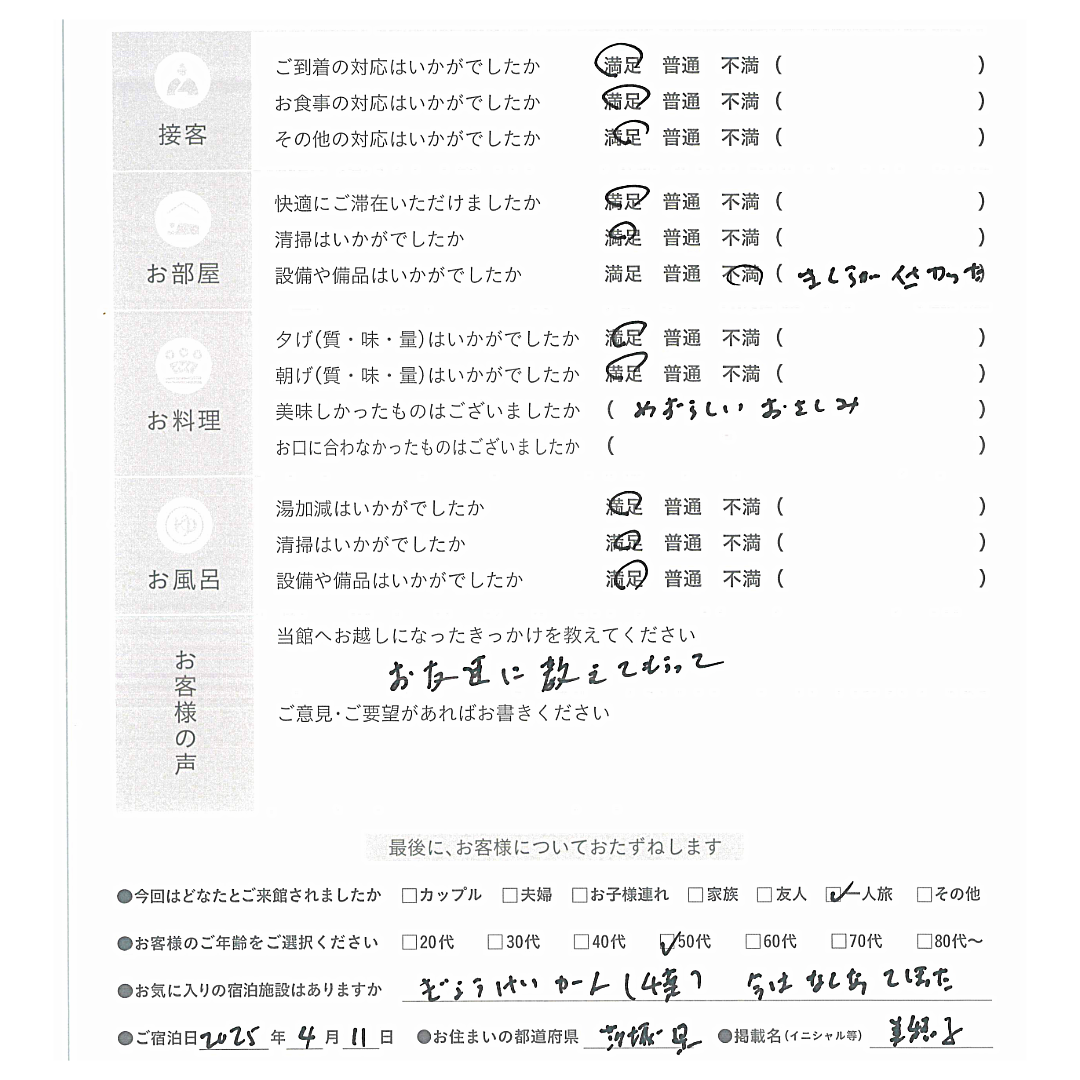 接客
ご到着の対応はいかがでしたか 満足 普通 不満 ( )
お食事の対応はいかがでしたか 満足 普通 不満 ( )
その他の対応はいかがでしたか 満足 普通 不満 ( )
お部屋
快適にご滞在いただけましたか 満足 普通 不満 ( )
清掃はいかがでしたか 満足 普通 不満 ( )
設備や備品はいかがでしたか 満足 普通 不満 ( まくらが )
お料理
夕げ(質・味・量)はいかがでしたか 満足 普通 不満 ( )
朝げ(質・味・量)はいかがでしたか 満足 普通 不満 ( )
美味しかったものはございましたか ( めずらしい おさしみ )
お口に合わなかったものはございましたか ( )
お風呂
ゆ
湯加減はいかがでしたか 満足 普通 不満 ( )
清掃はいかがでしたか 満足 普通 不満 ( )
設備や備品はいかがでしたか 満足 普通 不満 ( )
お客様の声
当館へお越しになったきっかけを教えてください
お友達に教えてもらって
ご意見・ご要望があればお書きください
最後に、お客様についておたずねします
●今回はどなたとご来館されましたか □カップル □夫婦 □お子様連れ □家族 □友人 ☑一人旅 □その他
●お客様のご年齢をご選択ください □20代 □30代 □40代 ☑50代 □60代 □70代 □80代～
●お気に入りの宿泊施設はありますか 今は
●ご宿泊日 2025 年 4 月 11 日 ●お住まいの都道府県 茨城県 ●掲載名(イニシャル等)